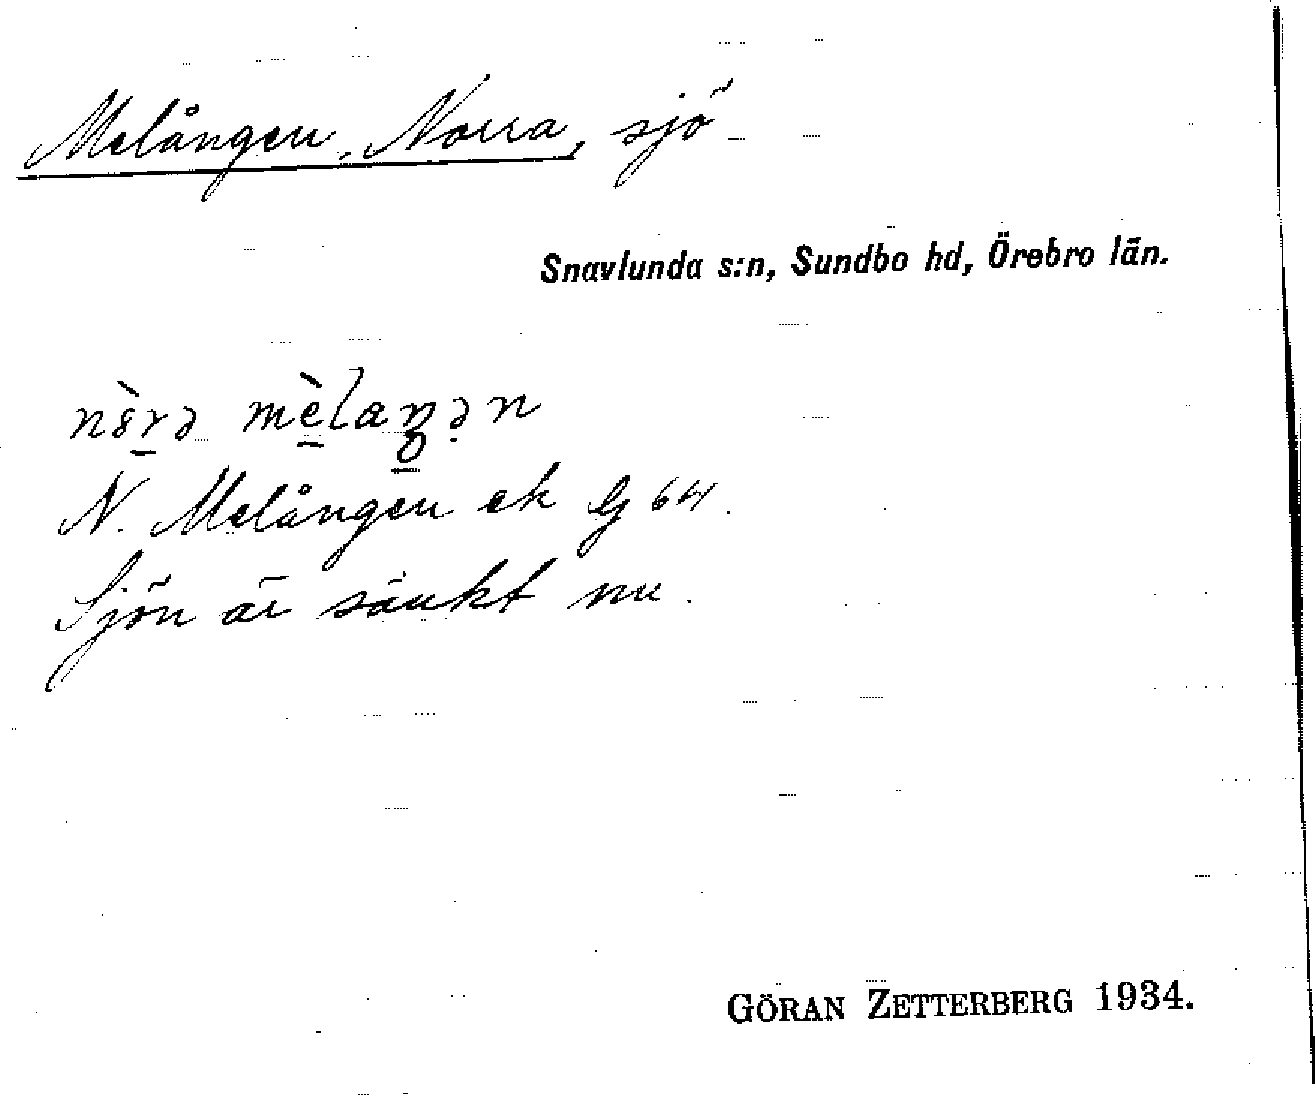 Melången, Norra, sjö
Snavlunda s:n, Sundbo hd, Örebro län.
nòrə mèlaŋən
N. Melången ek G 64.
Sjön är sänkt nu.
GÖRAN ZETTERBERG 1934.